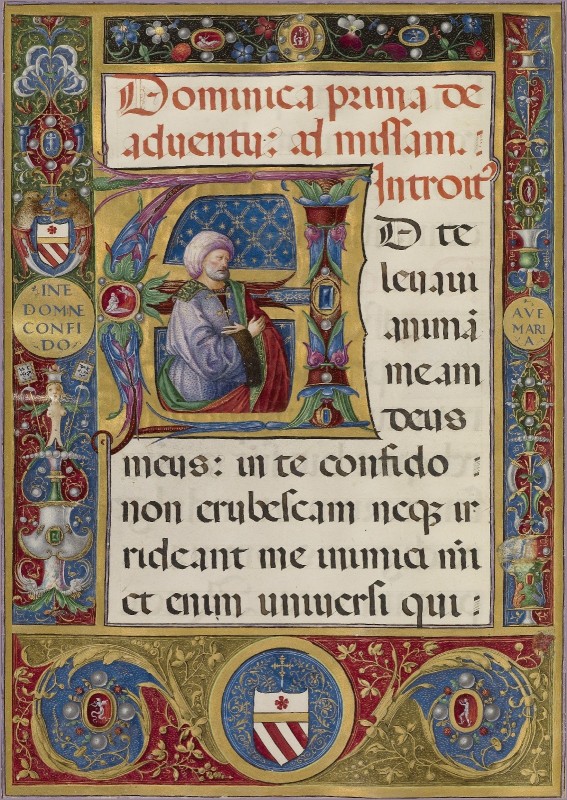 Dominica prima de
adventu: ad missam.
Introit
AD te
levavi
animā
meam
deus
meus: in te confido
non erubescam neqȝ ir
rideant me inimici m̄i
et enim universi qui
·INE
DOMNE
CONFI
·DO·
AVE
MARI
A